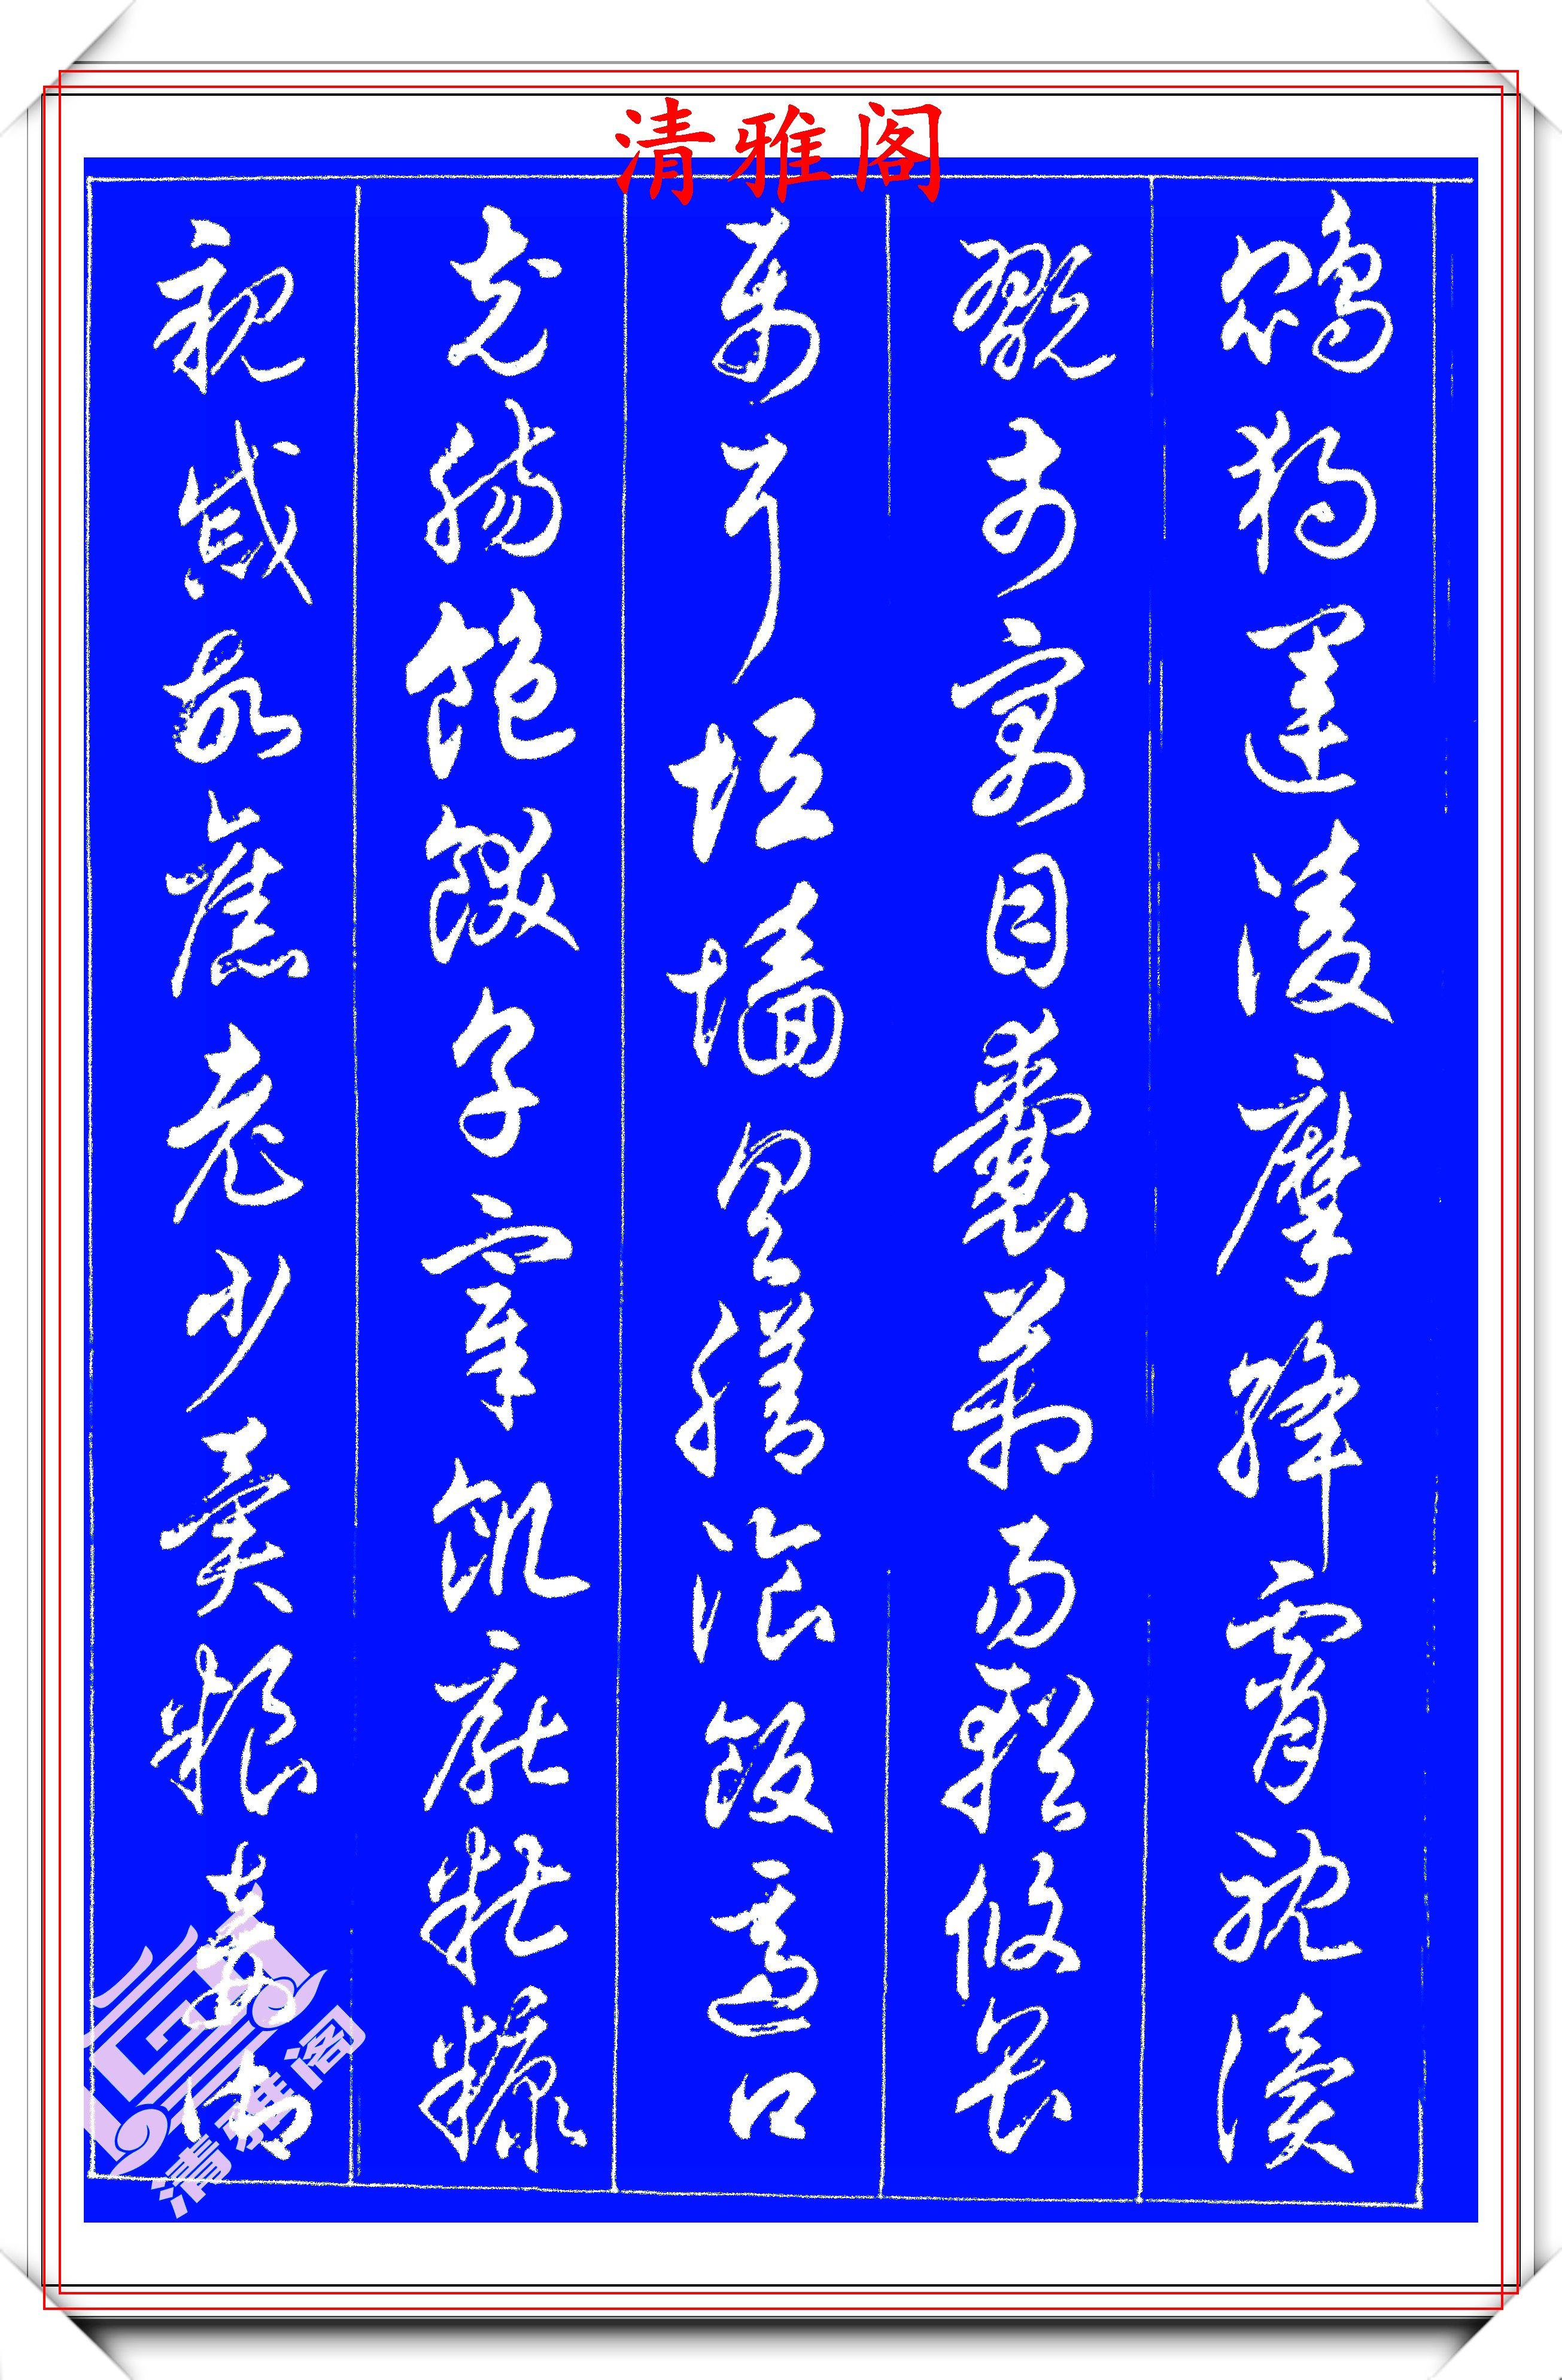 清雅阁
鵾獨運淩摩絳霄耽讀
翫市寓目囊箱易輶攸畏
属耳垣墙具膳湌飯適口
充腸飽飫烹宰飢厭糟糠
親戚故舊老少異粮妾御
清雅阁